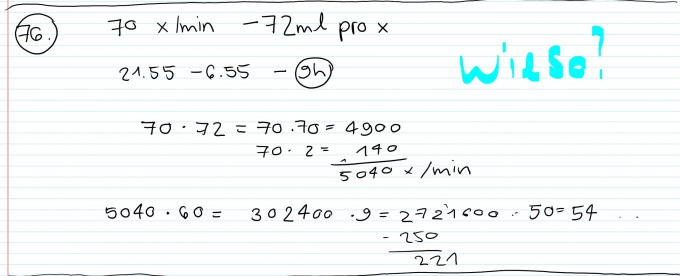 76. 70 x/min - 72ml pro x
Wieso?
21.55 - 6.55 - 9h
70 · 72 = 70 · 70 = 4900
70 · 2 = 140
5040 x/min
5040 · 60 = 302400 · 9 = 2721600 : 50 = 54 ..
- 250
221